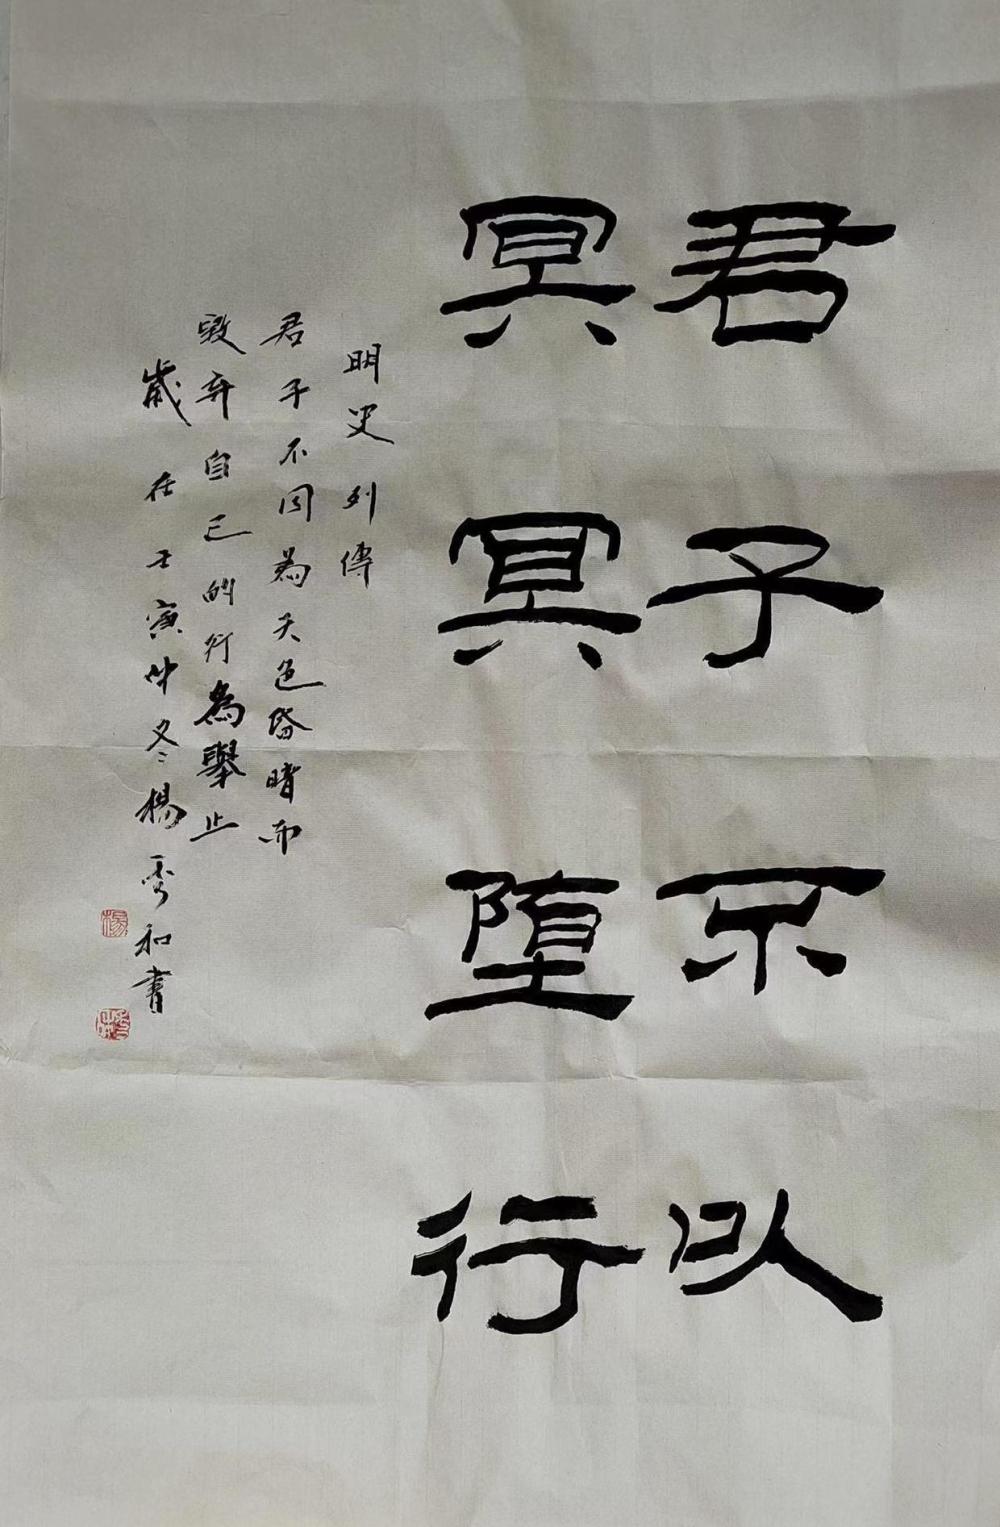 君子不以
冥冥堕行
明史列傳
君子不因為天色昏暗而
毀弃自己的行為舉止
歲在壬寅仲冬楊秀和書